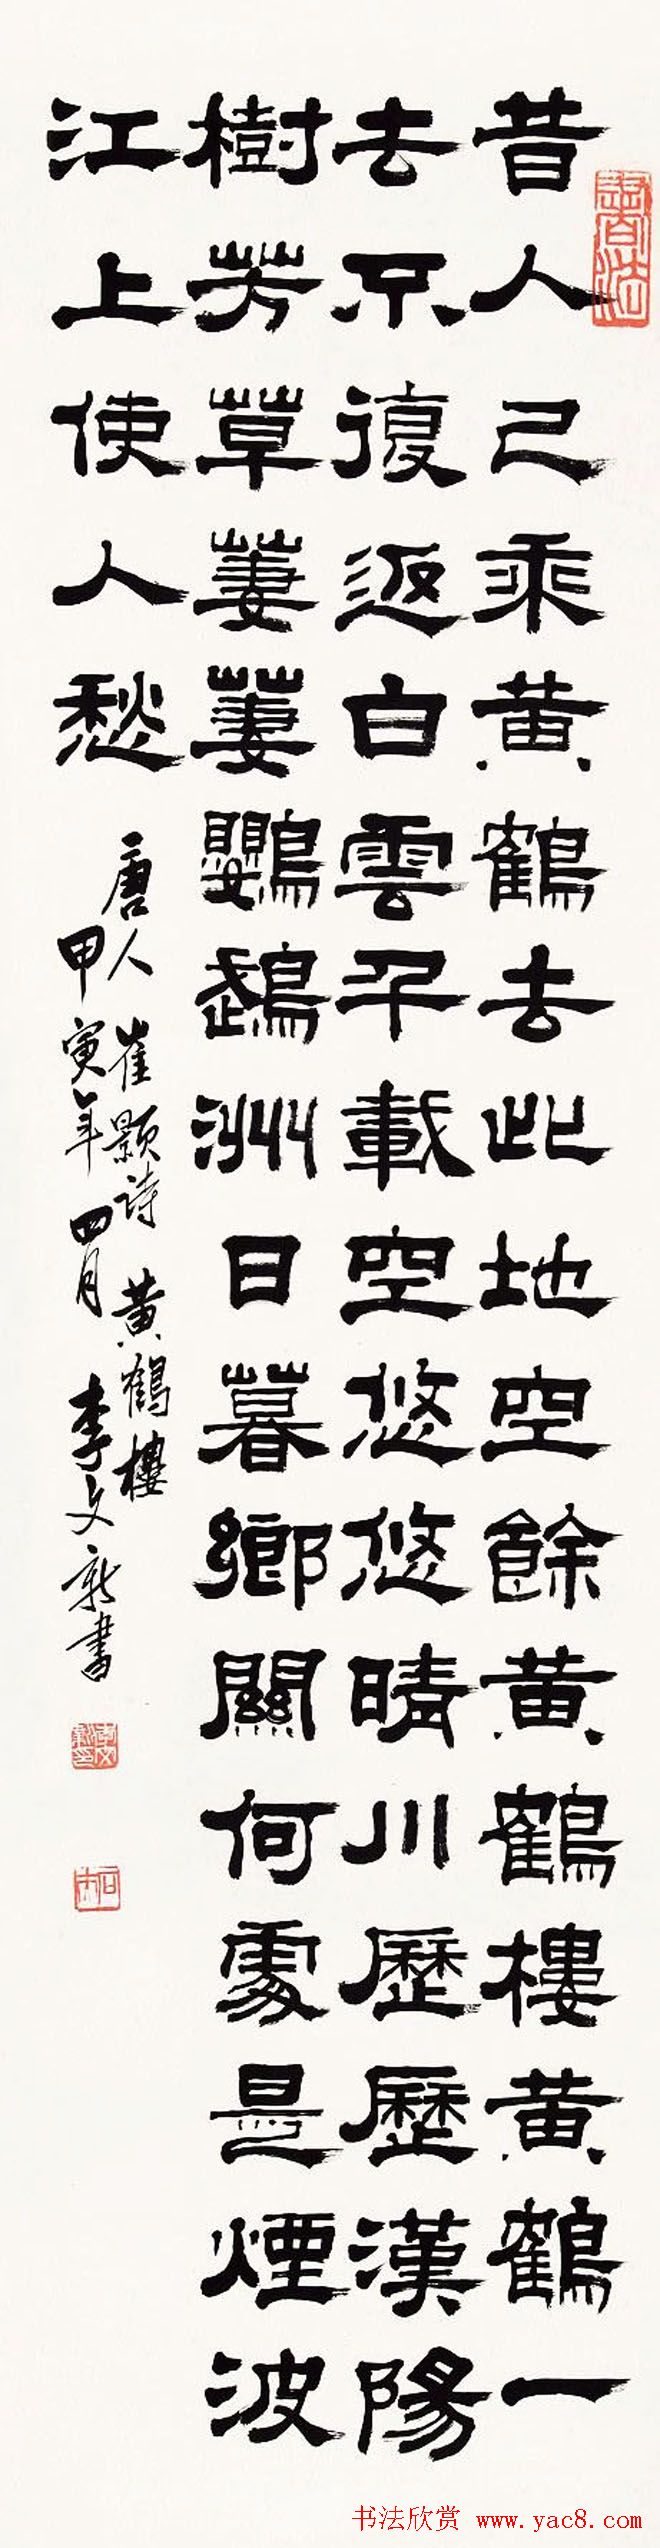 昔人已乘黄鶴去此地空餘黄鶴樓黄鶴一
去不復返白雲千載空悠悠晴川歷歷漢陽
樹芳草萋萋鸚鵡洲日暮鄉關何處是煙波
江上使人愁
唐人崔颢诗黄鶴樓
甲寅年四月李文新書
书法欣赏 www.yac8.com